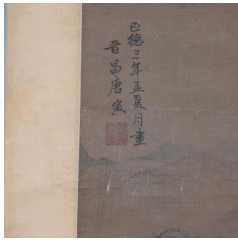 正德二年孟夏月畫
晋昌唐寅